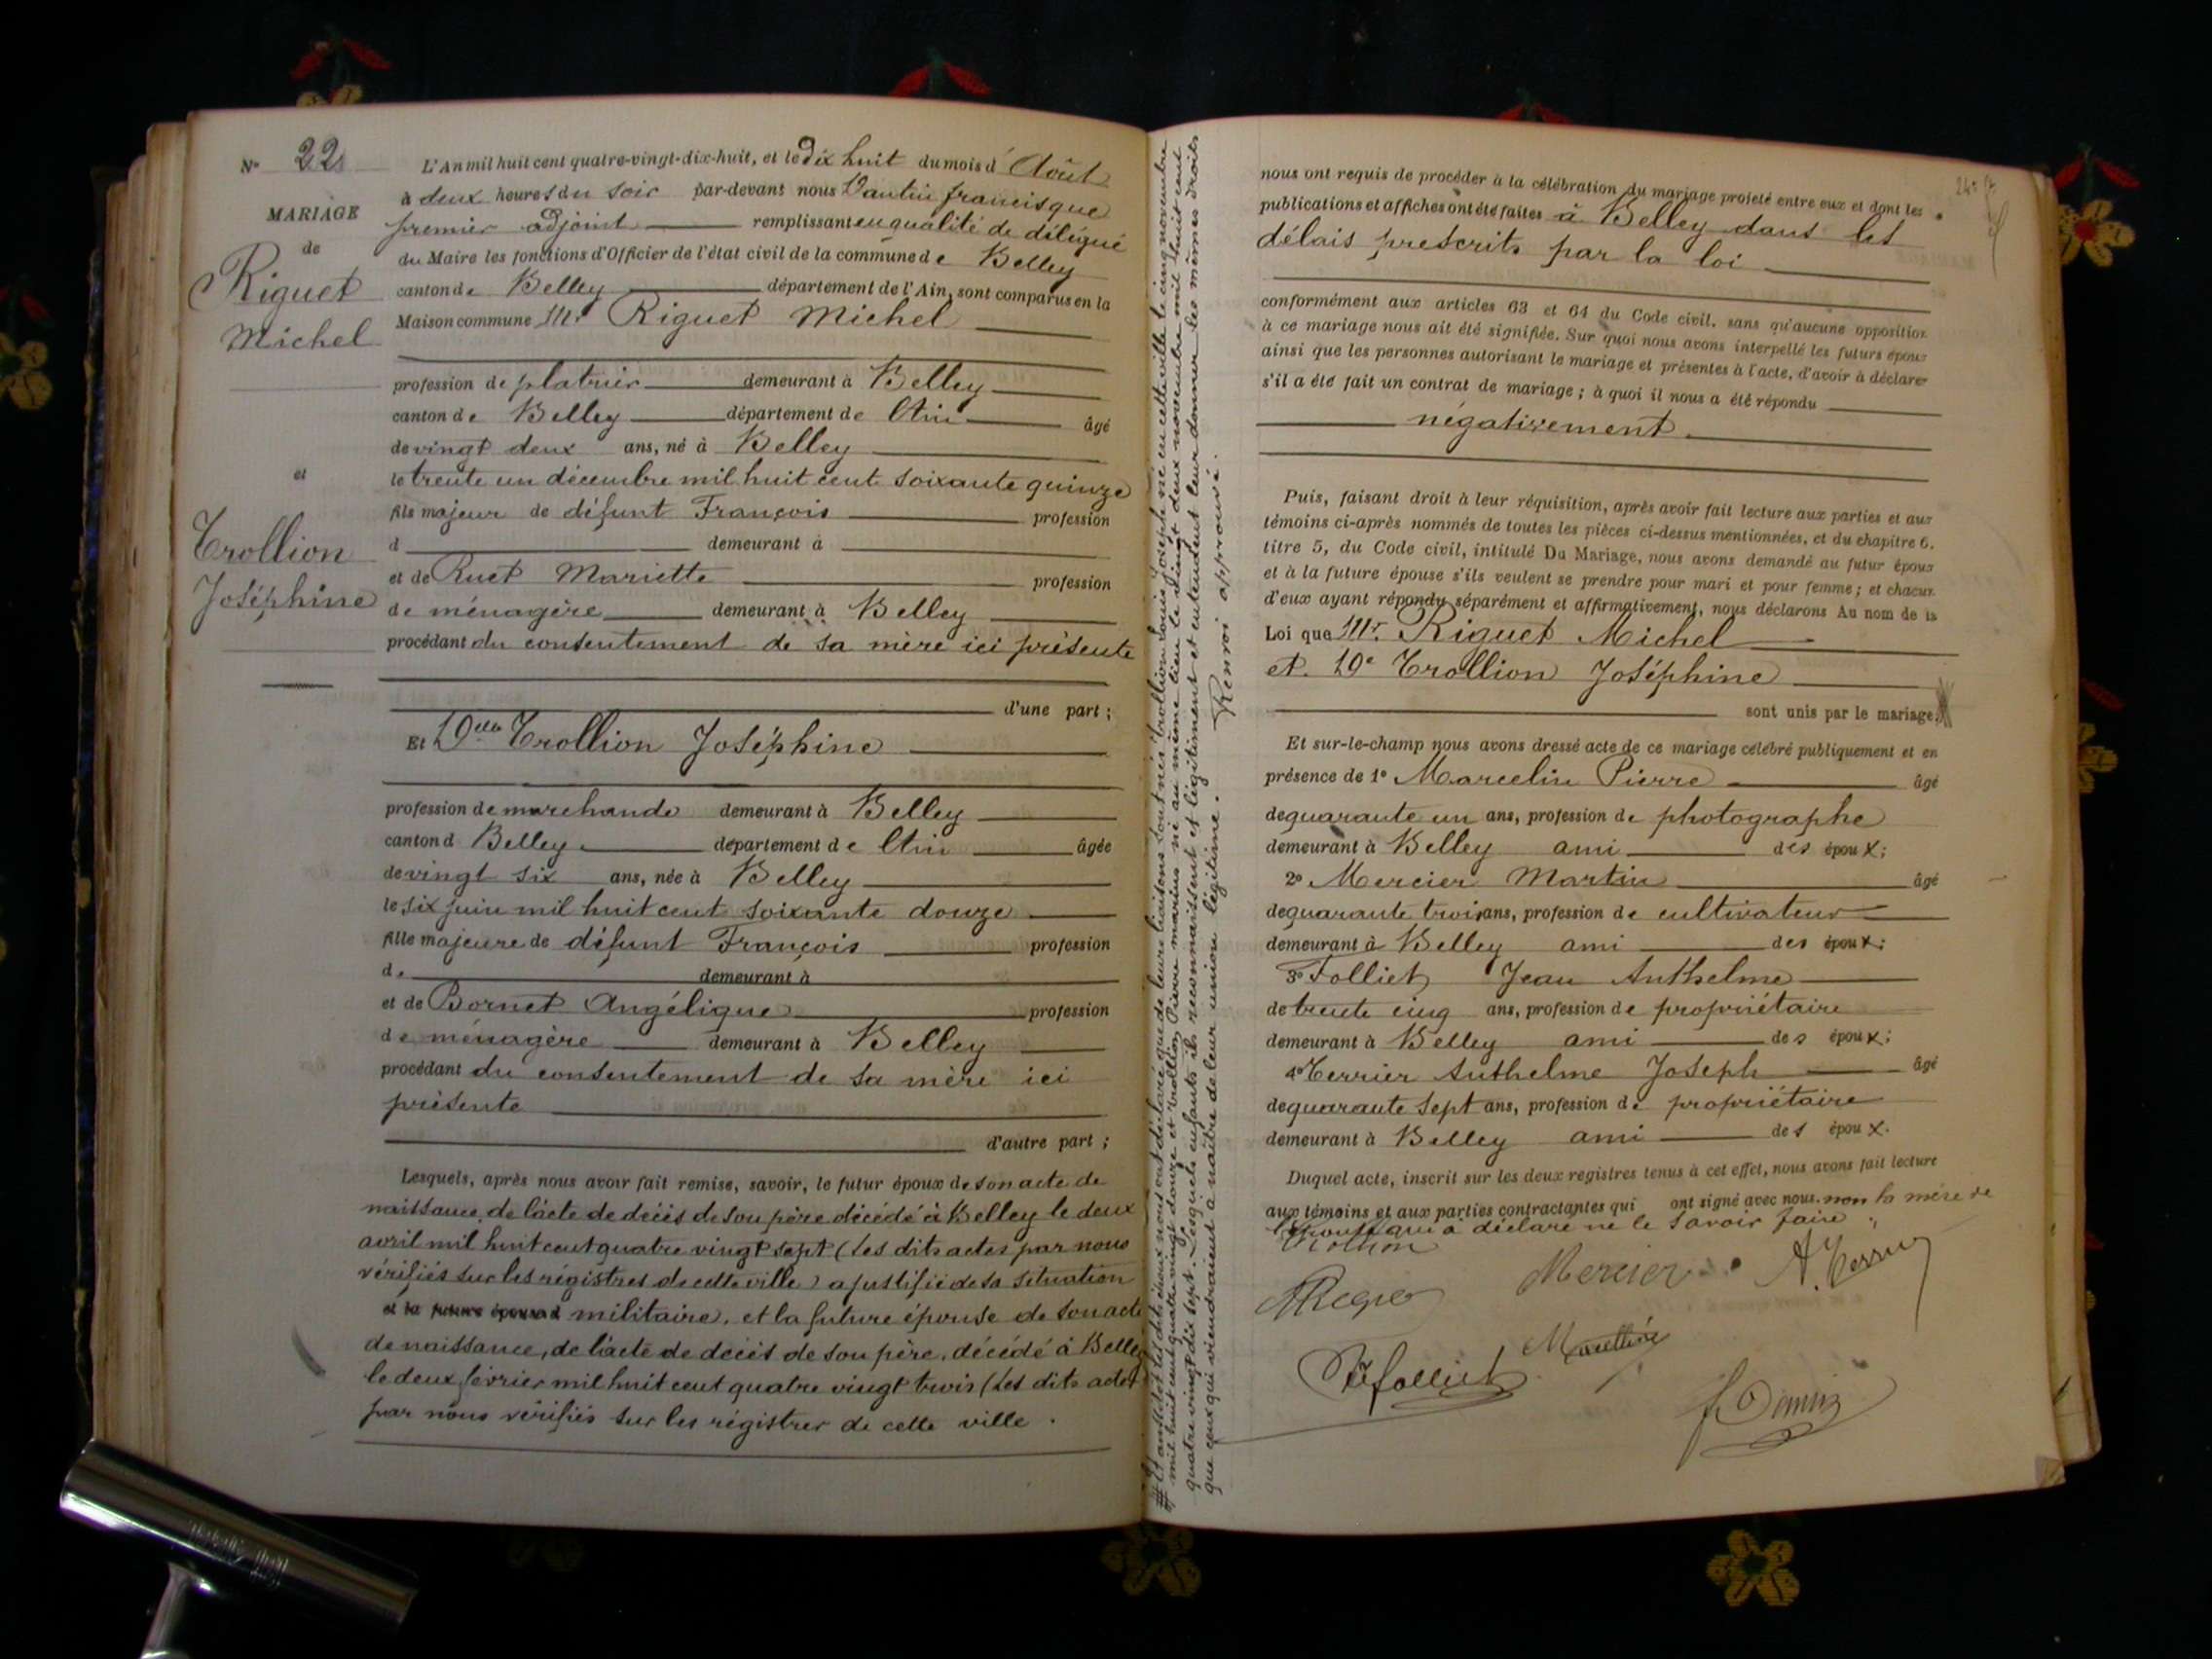 N° 22
MARIAGE
de
Riguet
Michel
et
Trollion
Joséphine
L'An mil huit cent quatre-vingt-dix-huit, et le Dix huit du mois d'Août
à deux heures du soir par-devant nous Vautin francisque
premier adjoint remplissant en qualité de délégué
du Maire les fonctions d'Officier de l'état civil de la commune de Belley
canton de Belley département de l'Ain, sont comparus en la
Maison commune Mr Riguet Michel
profession de platrier demeurant à Belley
canton de Belley département de l'Ain âgé
de vingt deux ans, né à Belley
le trente un décembre mil huit cent soixante quinze
fils majeur de défunt François profession
d demeurant à
et de Ruet Mariette profession
de ménagère demeurant à Belley
procédant du consentement de sa mère ici présente
d'une part ;
Et Delle Trollion Joséphine
profession de marchande demeurant à Belley
canton d Belley département de l'Ain âgée
de vingt six ans, née à Belley
le six juin mil huit cent soixante douze
fille majeure de défunt François profession
de demeurant à
et de Bornet Angélique profession
de ménagère demeurant à Belley
procédant du consentement de sa mère ici
présente
d'autre part ;
Lesquels, après nous avoir fait remise, savoir, le futur époux de son acte de
naissance, de l'acte de décès de son père décédé à Belley le deux
avril mil huit cent quatre vingt sept (les dits actes par nous
vérifiés sur les régistres de cette ville) a justifié de sa situation
et la future épouse d militaire, et la future épouse de son acte
de naissance, de l'acte de décès de son père, décédé à Belley
le deux février mil huit cent quatre vingt trois (les dits actes
par nous vérifiés sur les régistres de cette ville.
Et aussitôt les dits époux nous ont déclaré que de leurs liaisons sont nés Trollion Louis Joseph né en cette ville le cinq novembre
mil huit cent quatre vingt douze et Trollion Pierre marius né au même lieu le vingt deux novembre mil huit cent
quatre vingt dix sept. Lesquels enfants ils reconnaissent et légitiment et entendent leur donner les mêmes droits
que ceux qui viendraient à naître de leur union légitime. Renvoi approuvé.
nous ont requis de procéder à la célébration du mariage projeté entre eux et dont les
publications et affiches ont été faites à Belley dans les
délais prescrits par la loi
conformément aux articles 63 et 64 du Code civil, sans qu'aucune opposition
à ce mariage nous ait été signifiée. Sur quoi nous avons interpellé les futurs époux
ainsi que les personnes autorisant le mariage et présentes à l'acte, d'avoir à déclarer
s'il a été fait un contrat de mariage ; à quoi il nous a été répondu
négativement.
Puis, faisant droit à leur réquisition, après avoir fait lecture aux parties et aux
témoins ci-après nommés de toutes les pièces ci-dessus mentionnées, et du chapitre 6,
titre 5, du Code civil, intitulé Du Mariage, nous avons demandé au futur époux
et à la future épouse s'ils veulent se prendre pour mari et pour femme ; et chacun
d'eux ayant répondu séparément et affirmativement, nous déclarons Au nom de la
Loi que Mr. Riguet Michel
et De Trollion Joséphine
sont unis par le mariage.
Et sur-le-champ nous avons dressé acte de ce mariage célébré publiquement et en
présence de 1° Marcelin Pierre âgé
de quarante un ans, profession de photographe
demeurant à Belley ami des époux ;
2° Mercier Martin âgé
de quarante trois ans, profession de cultivateur
demeurant à Belley ami des époux ;
3° Folliet Jean Anthelme
de trente cinq ans, profession de propriétaire
demeurant à Belley ami des époux ;
4° Terrier Anthelme Joseph âgé
de quarante sept ans, profession de propriétaire
demeurant à Belley ami des époux.
Duquel acte, inscrit sur les deux registres tenus à cet effet, nous avons fait lecture
aux témoins et aux parties contractantes qui ont signé avec nous. non la mère de
l'épouse qui a déclaré ne le savoir faire
Trollion
Mercier
Folliet